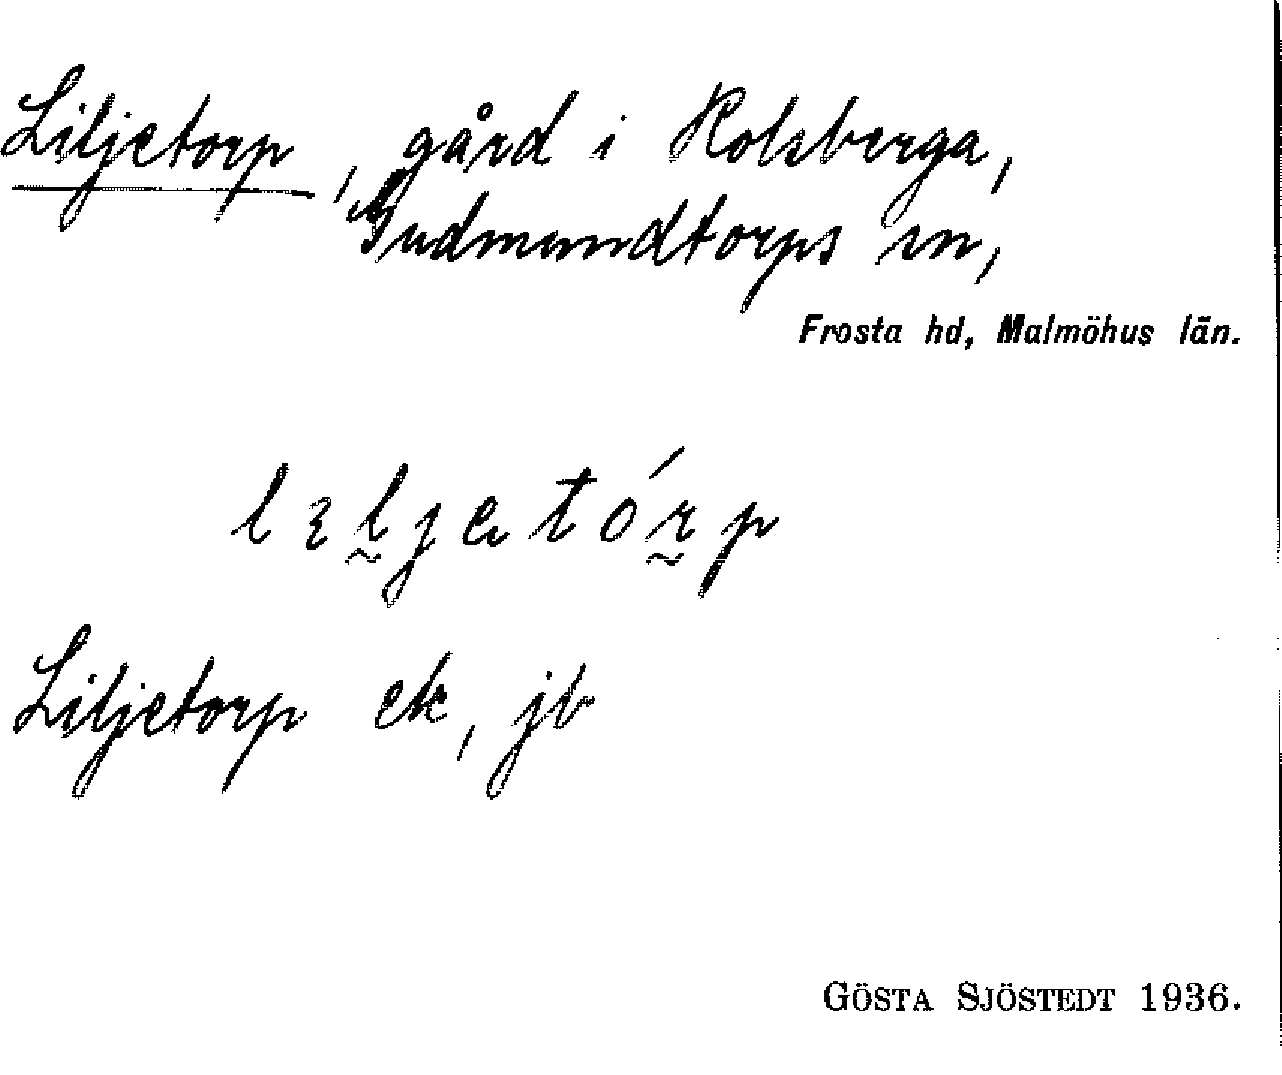 Liljetorp, gård i Rolsberga,
Gudmundtorps sn,
Frosta hd, Malmöhus län.
Liljetorp ek, jb
GÖSTA SJÖSTEDT 1936.